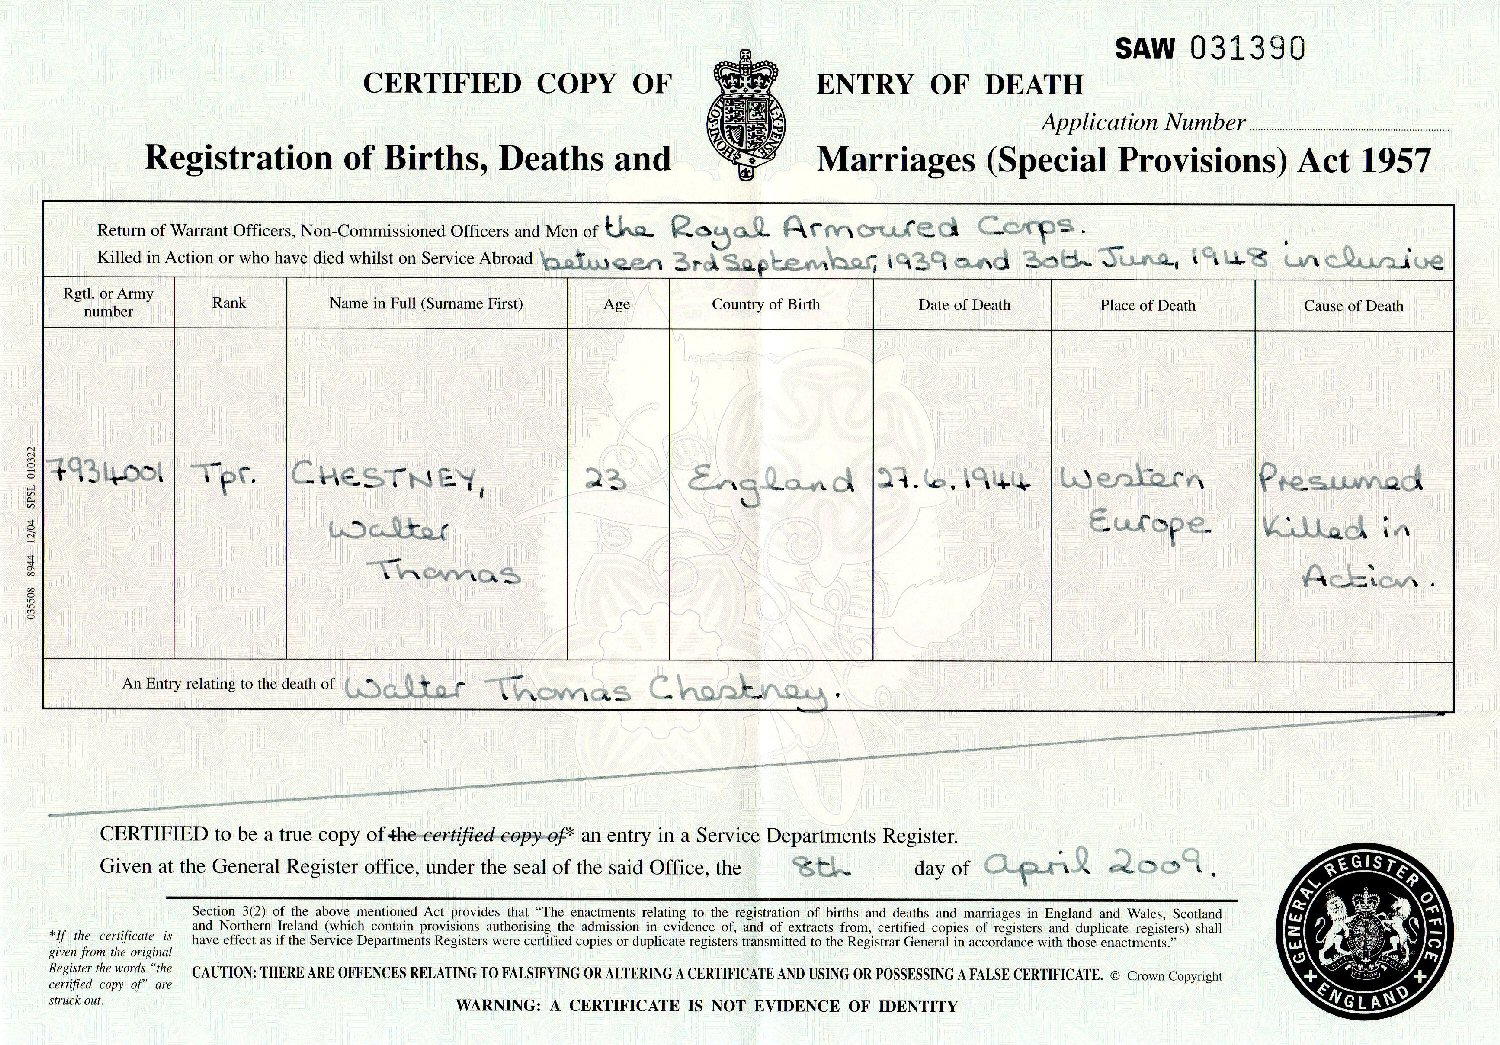 SAW 031390
CERTIFIED COPY OF ENTRY OF DEATH
Application Number
Registration of Births, Deaths and Marriages (Special Provisions) Act 1957
Return of Warrant Officers, Non-Commissioned Officers and Men of the Royal Armoured Corps.
Killed in Action or who have died whilst on Service Abroad between 3rd September, 1939 and 30th June, 1948 inclusive
Rgtl. or Army number
Rank
Name in Full (Surname First)
Age
Country of Birth
Date of Death
Place of Death
Cause of Death
7934001
Tpr.
CHESTNEY,
Walter
Thomas
23
England
27.6.1944
Western
Europe
Presumed
Killed in
Action.
An Entry relating to the death of Walter Thomas Chestney.
035508 8944 12/04 SPSL 010322
CERTIFIED to be a true copy of the certified copy of* an entry in a Service Departments Register.
Given at the General Register office, under the seal of the said Office, the 8th day of April 2009.
*If the certificate is
given from the original
Register the words "the
certified copy of" are
struck out.
Section 3(2) of the above mentioned Act provides that "The enactments relating to the registration of births and deaths and marriages in England and Wales, Scotland
and Northern Ireland (which contain provisions authorising the admission in evidence of, and of extracts from, certified copies of registers and duplicate registers) shall
have effect as if the Service Departments Registers were certified copies or duplicate registers transmitted to the Registrar General in accordance with those enactments."
CAUTION: THERE ARE OFFENCES RELATING TO FALSIFYING OR ALTERING A CERTIFICATE AND USING OR POSSESSING A FALSE CERTIFICATE. © Crown Copyright
WARNING: A CERTIFICATE IS NOT EVIDENCE OF IDENTITY
GENERAL REGISTER OFFICE
ENGLAND